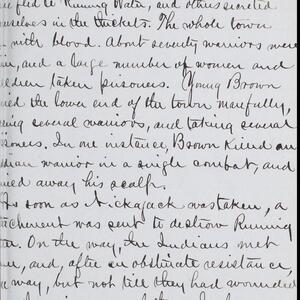 fled to Running Water, and others secreted
mselves in the thickets. The whole town
with blood. About seventy warriors were
in, and a large number of women and
ldren taken prisoners. Young Brown
ed the lower end of the town manfully,
ing several warriors, and taking several
soners. In one instance, Brown killed an
dian warrior in a single combat, and
ried away his scalf.
As soon as Nickajack was taken, a
tachment was sent to destroy Running
ter. On the way, the Indians met
m, and, after an obstinate resistance,
way, but not till they had wounded